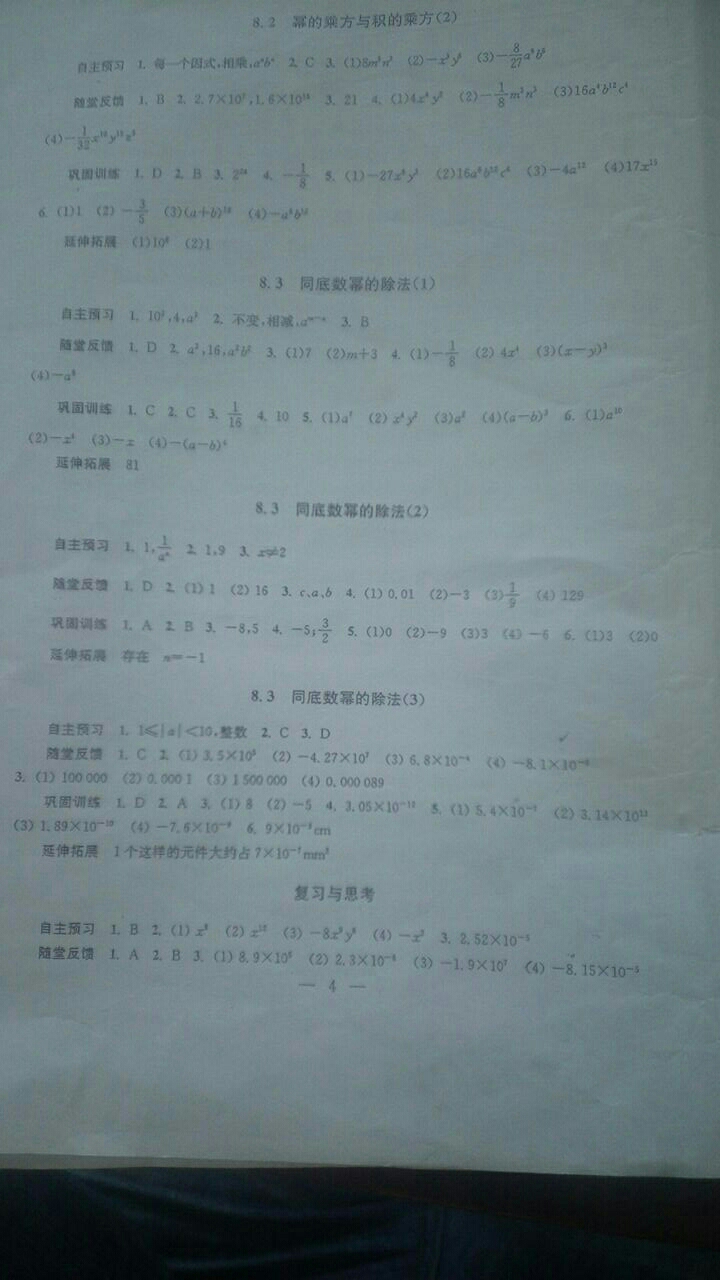 8.2 幂的乘方与积的乘方(2)
自主预习 1. 每一个因式,相乘,a⁴b⁴ 2. C 3. (1)8m³n³ (2)-x³y⁶ (3)-8/27
随堂反馈 1. B 2. 2.7×10⁷,1.6×10¹³ 3. 21 4. (1)4x⁴y² (2)-1/8m³n³ (3)16a⁴b¹²c⁴
(4)-1/32x¹⁰y¹⁵z⁵
巩固训练 1. D 2. B 3. 2²⁴ 4. -1/8 5. (1)-27x⁶y³ (2)16a⁸b¹²c⁴ (3)-4a¹² (4)17x¹⁵
6. (1)1 (2)-3/5 (3)(a+b)¹⁸ (4)
延伸拓展 (1)10⁶ (2)1
8.3 同底数幂的除法(1)
自主预习 1. 10²,4,a³ 2. 不变,相减,aᵐ⁻ⁿ 3. B
随堂反馈 1. D 2. a²,16,a²b² 3. (1)7 (2)m+3 4. (1)-1/8 (2)4x⁴ (3)(x-y)³
(4)-a⁸
巩固训练 1. C 2. C 3. 1/16 4. 10 5. (1)a⁷ (2)x⁴y² (3)a² (4)(a-b)³ 6. (1)a¹⁰
(2)-x⁴ (3)-x (4)-(a-b)⁴
延伸拓展 81
8.3 同底数幂的除法(2)
自主预习 1. 1,1/aⁿ 2. 1,9 3. x≠2
随堂反馈 1. D 2. (1)1 (2)16 3. c、a、b 4. (1)0.01 (2)-3 (3)1/9 (4)129
巩固训练 1. A 2. B 3. -8,5 4. -5;3/2 5. (1)0 (2)-9 (3)3 (4)-6 6. (1)3 (2)0
延伸拓展 存在 n=-1
8.3 同底数幂的除法(3)
自主预习 1. 1≤|a|<10,整数 2. C 3. D
随堂反馈 1. C 2. (1)3.5×10⁵ (2)-4.27×10⁷ (3)6.8×10⁻⁴ (4)
3. (1)100 000 (2)0.000 1 (3)1 500 000 (4)0.000 089
巩固训练 1. D 2. A 3. (1)8 (2)-5 4. 3.05×10⁻¹² 5. (1) (2)3.14×10¹³
(3)1.89×10⁻¹⁰ (4) 6.
延伸拓展 1个这样的元件大约占7×10⁻⁷mm²
复习与思考
自主预习 1. B 2. (1)x⁸ (2)x¹² (3)-8x⁹y⁶ (4)-x³ 3. 2.52×10⁻⁵
随堂反馈 1. A 2. B 3. (1)8.9×10⁵ (2) (3)-1.9×10⁷ (4)-8.15×10⁻⁵
— 4 —